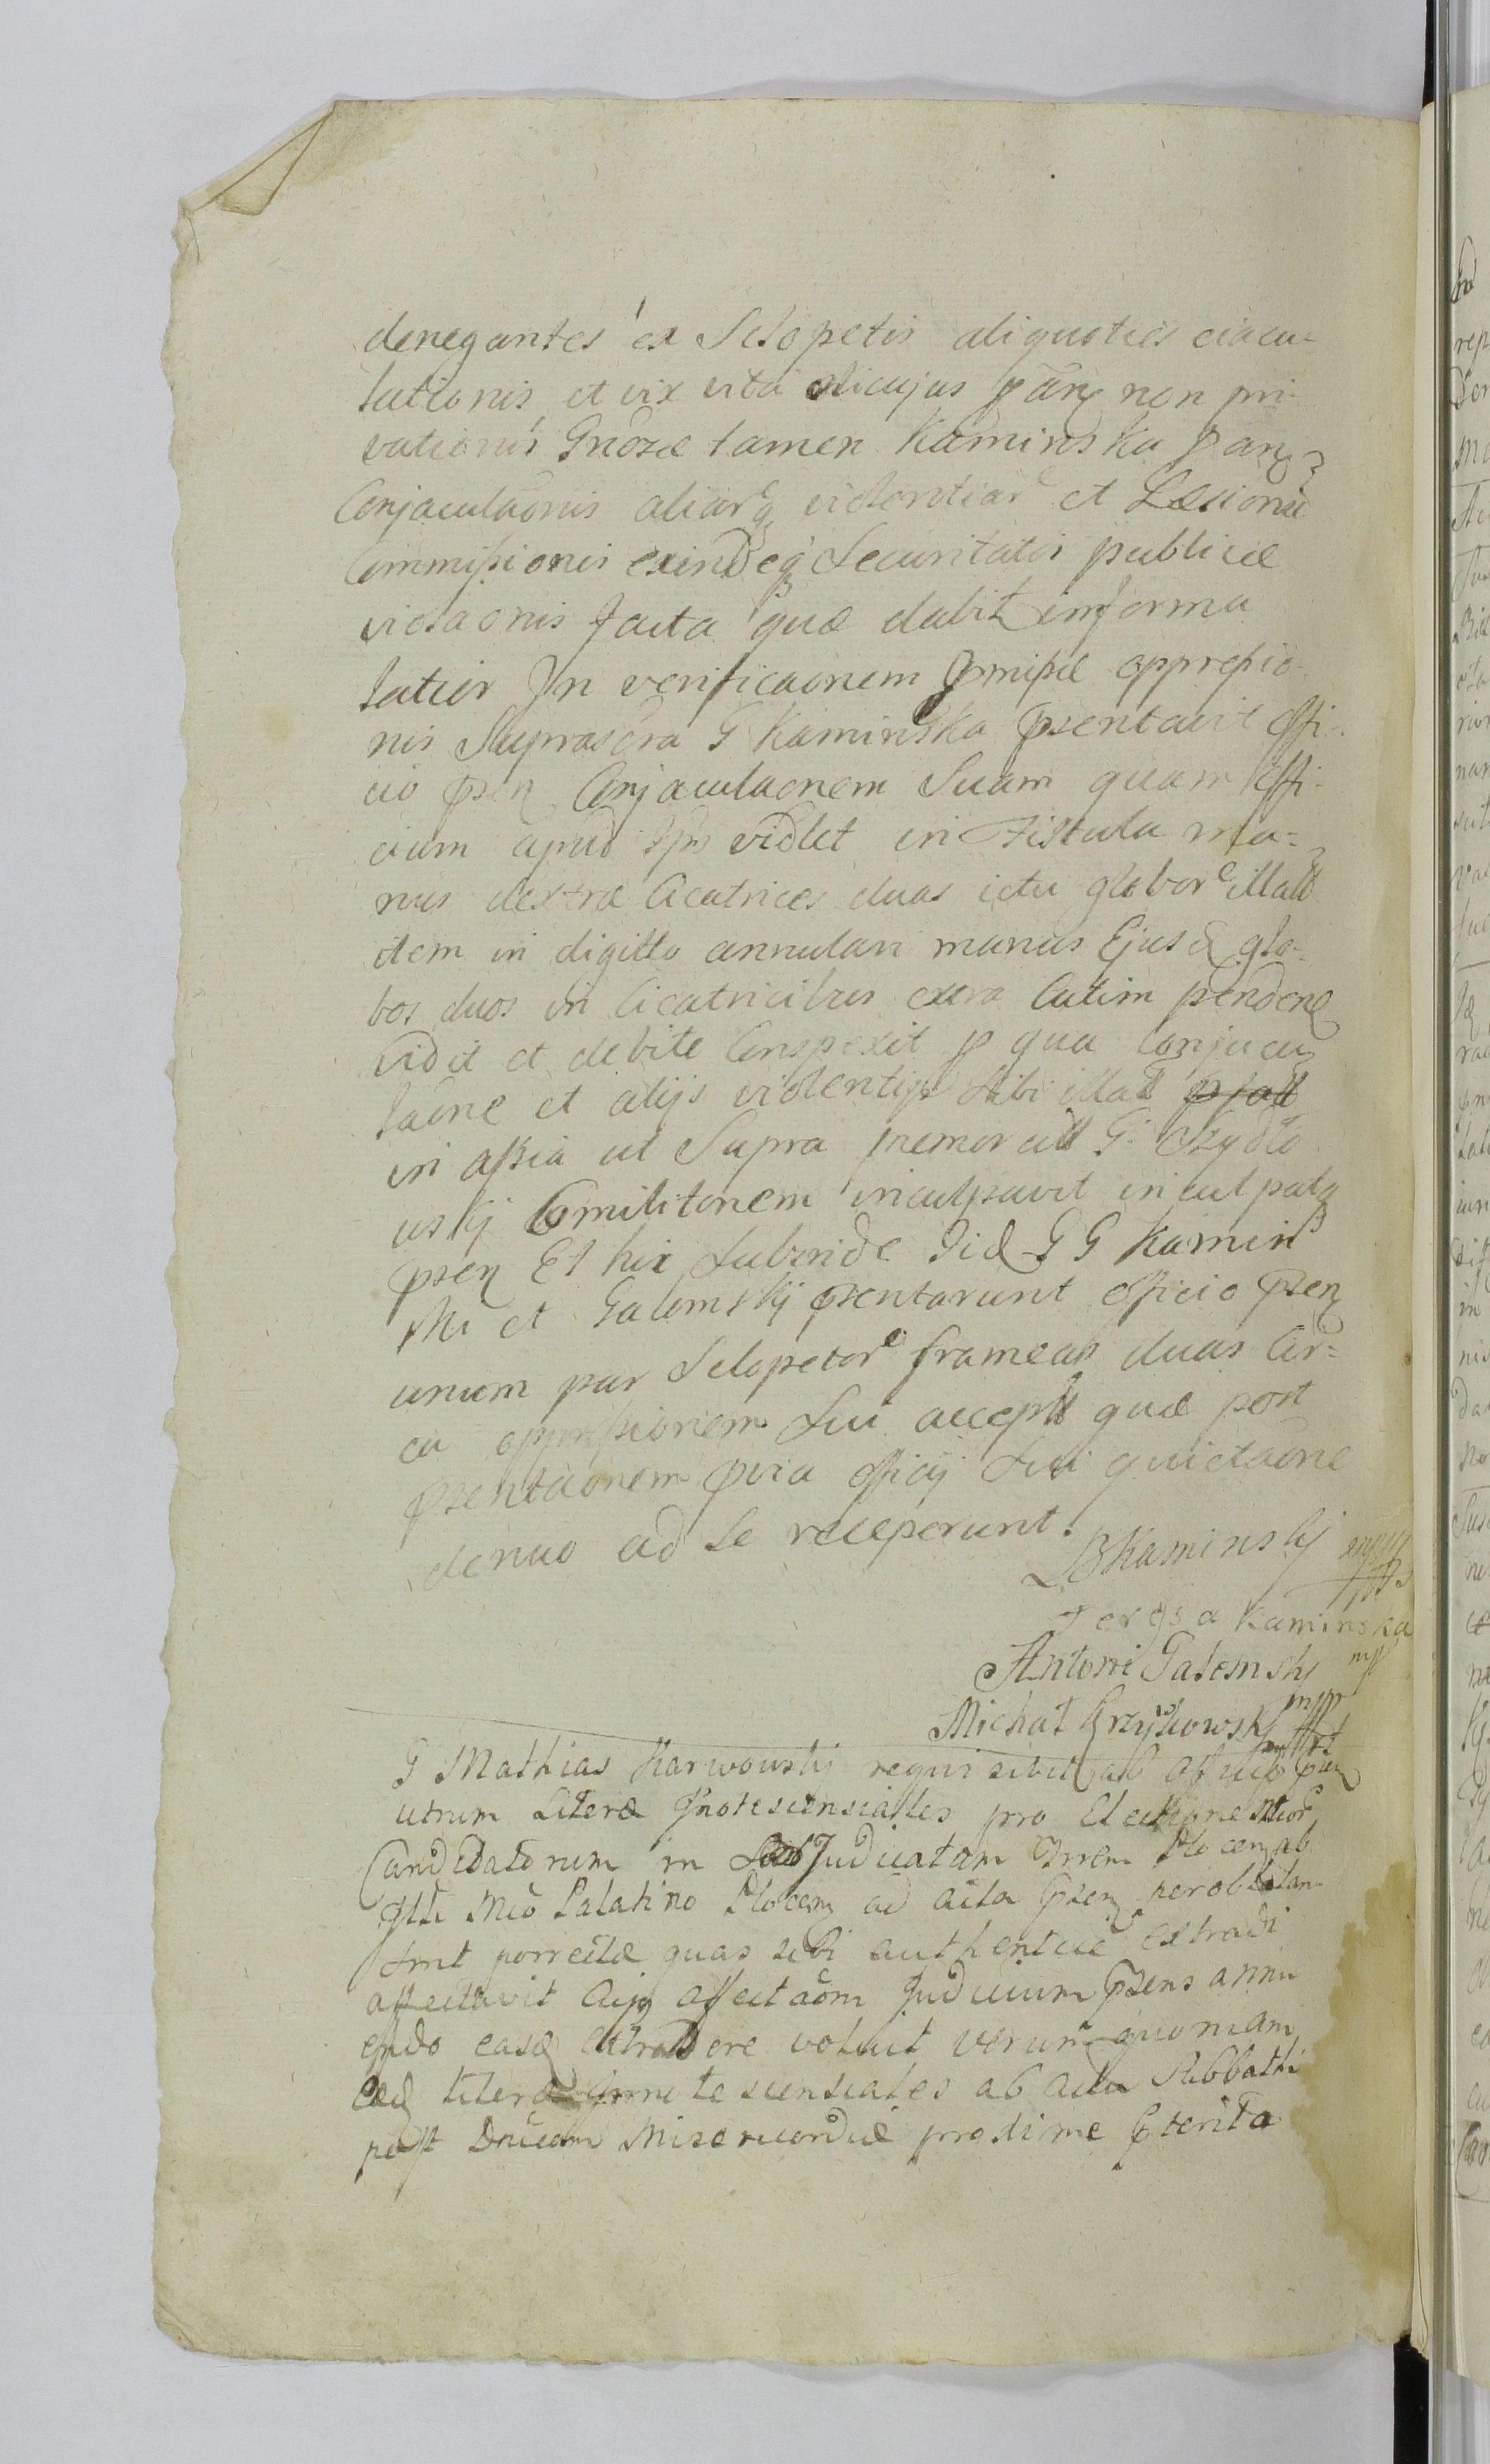 denegantes ex Sclopetis aliquoties eiacu=
lationis et vix vita alicujus P anz non pri-
vationis Gnosæ tamen Kaminska P anz
Conjaculaonis aliarq violentiar et Læsionu
Commissionis exindeq Securitatis publicæ
violaonis facta quæ dabit informa
latior In verificaonem Pmissæ oppressio-
nis Suprascra G Kaminska Psentavit Offi-
cio Psen Conjaculaonem Suam quam Offi-
cium apud Ips videt in Fistula ma=
nus dextræ Cicatrices duas ictu globor illatt
item in digitto annulari manus Ejusd glo-
bos duos in Cicatricibus extra Cutim penden
Vidit et debite Conspexit P qua Conjacu
laone et alijs violentijs Sibi illatt
in assia ut Supra Pmoratt G Szydlo
uskij Comilitonem inculpavit inculpatq
Psen Et hix Subinde Iid G G Kamins
ski et Galemskij Psentarunt Officio Psen
unum par Sclopetor frameas duas Cir=
ca oppressionem Sui accept quæ post
Psentaonem Pvia Officij Sui quietaone
denuo ad Se receperunt.
B Kaminskij mpp
Teresa Kaminska
Antoni Galemski mp
Michał Grzybowski mpp
G Mathias Karwouskij requisivit ab Officio Psen
utrum Literæ Innotescensiales pro Electione
Candidatorum in Judicatam Trrem Plocen ab
Illi Mco Palatino Plocen ad acta Psen per oblatam
Sint porrectæ quas sibi authentice extradi
affectavit Cujq affectaom Judicium Psens annu
endo easd extradere voluit verum quoniam
eæd Literæ Innotescensiales ab acta Sabbathi
post Dnicam Misericordiæ proxime Pterita